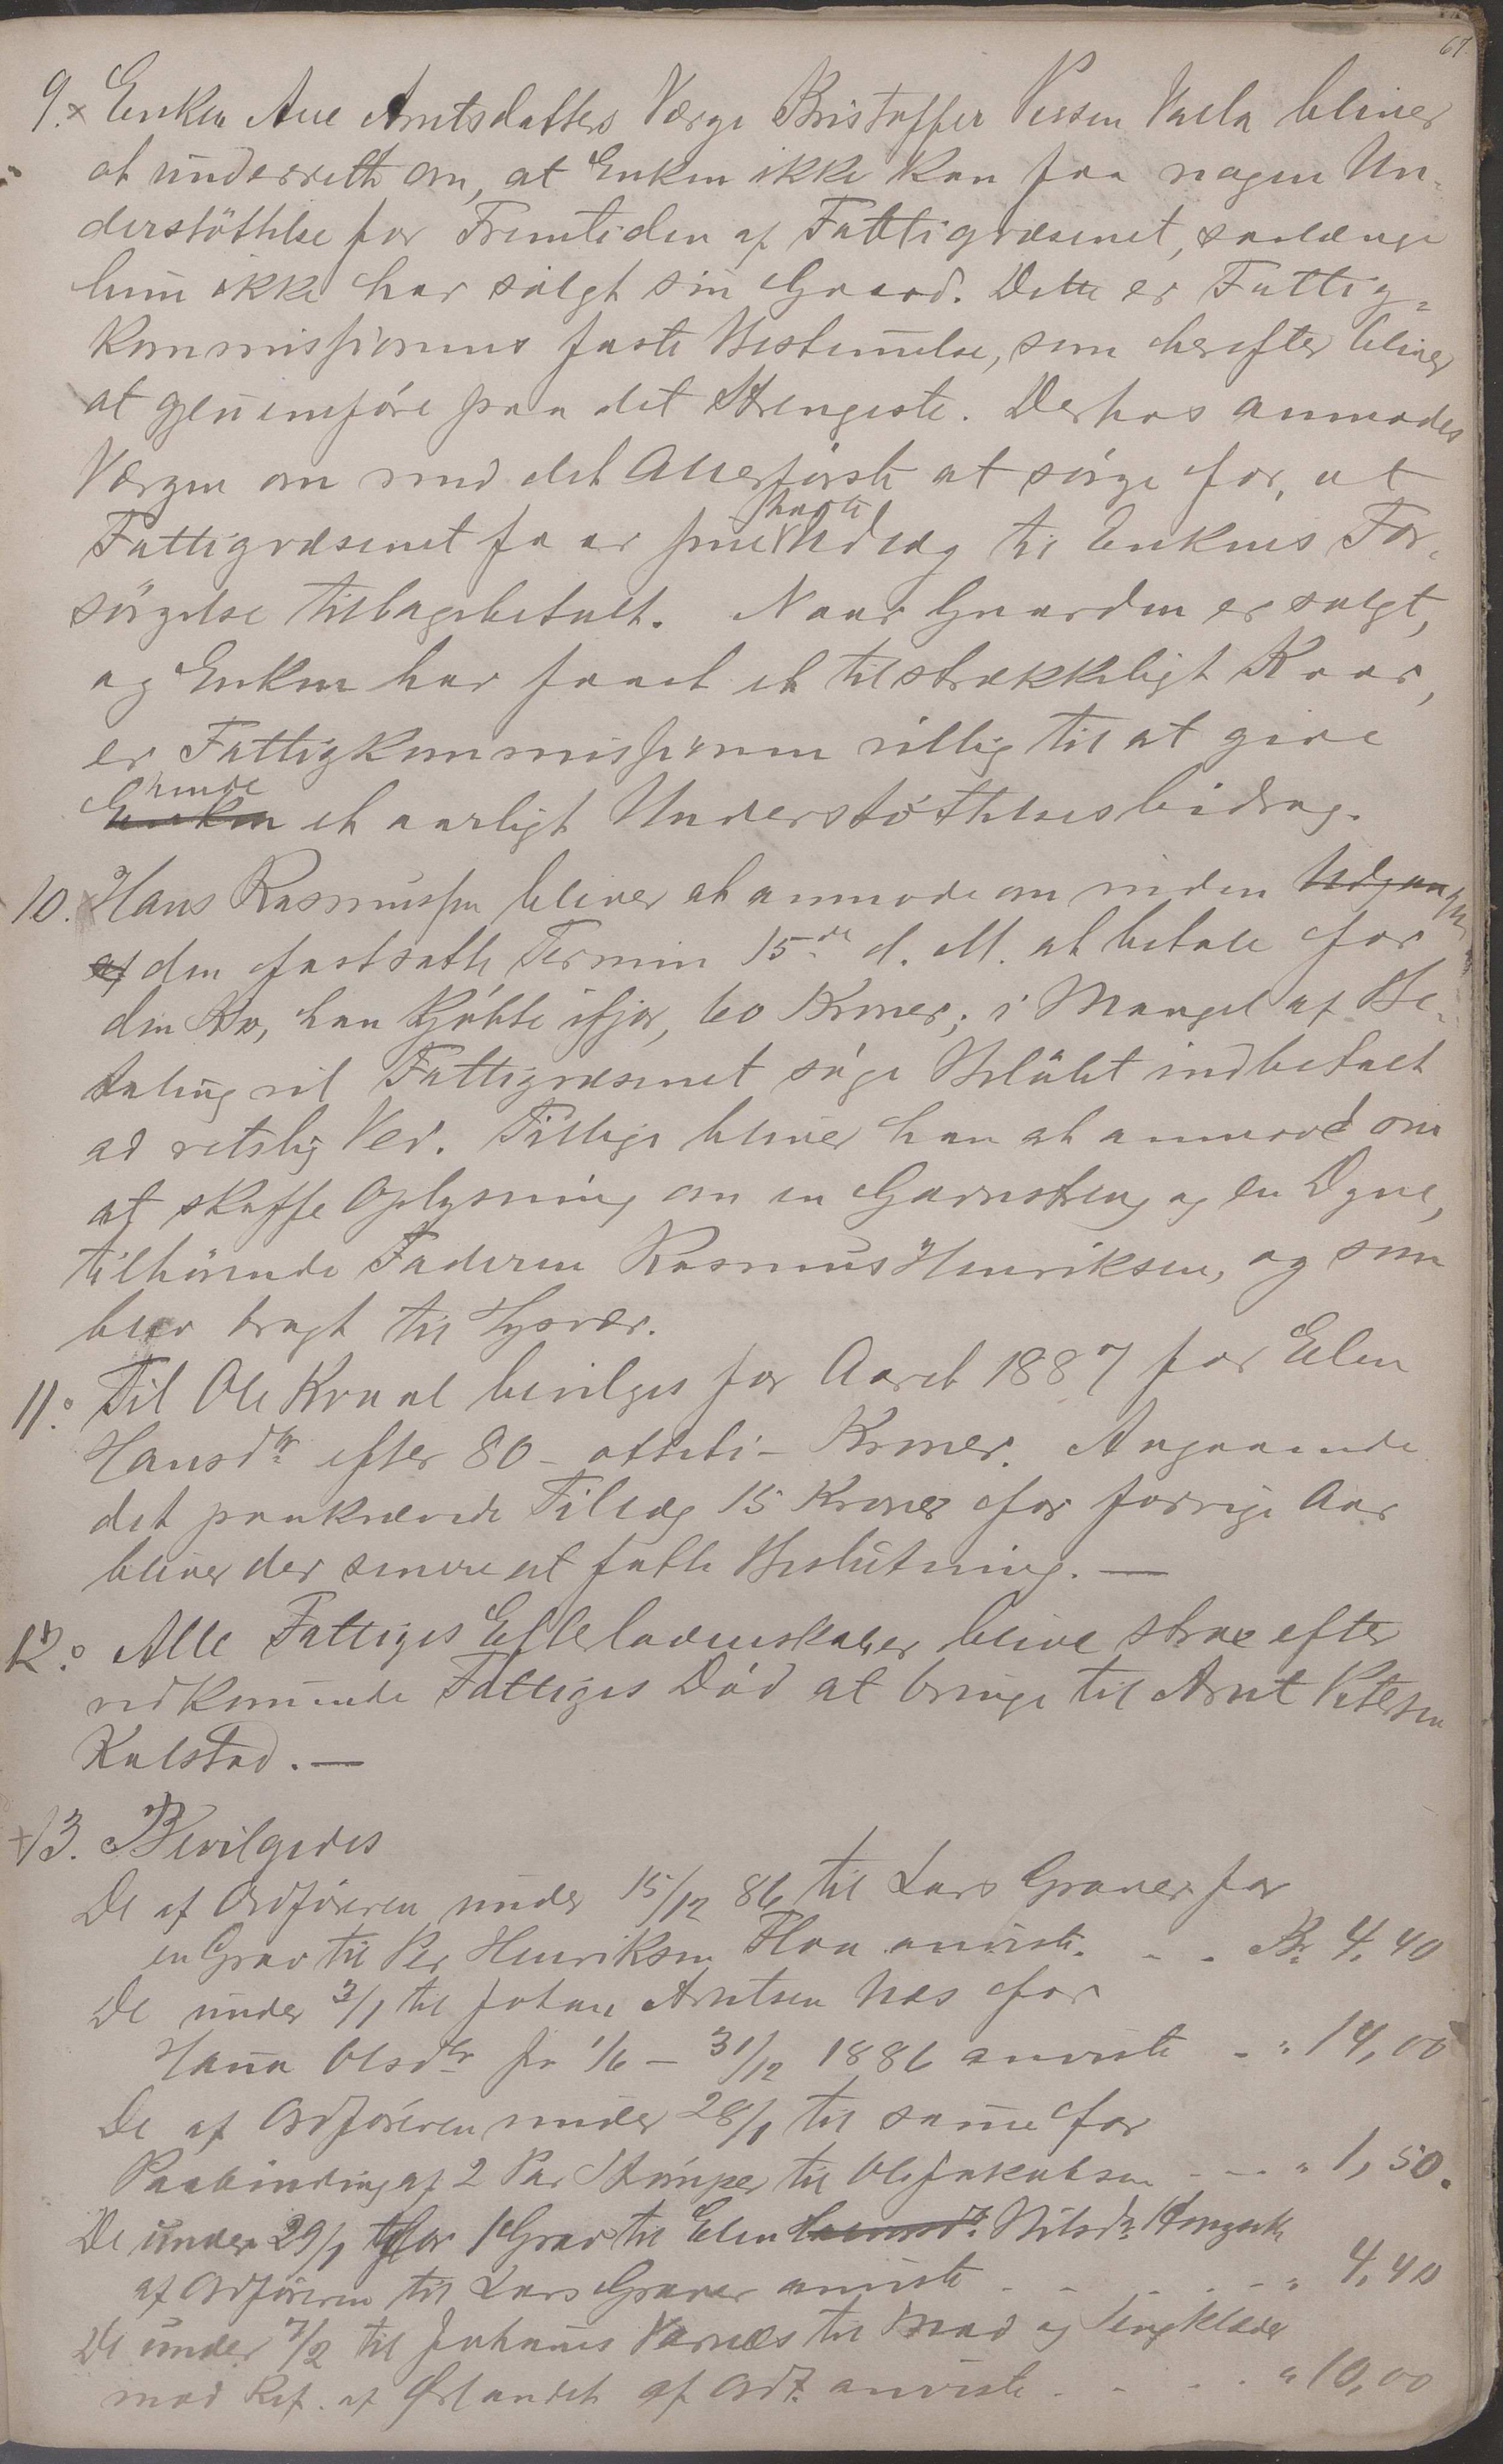 67.
9. x Enken Ane Arntsdatters Værge Kristoffer Vaela bliver
at underrette om, at Enken ikke kan faa nogen Un-
derstöttelse for Fremtiden af Fattigvæsenet, saalænge
hun ikke har solgt sin Gaard. Dette er Fattig-
kommissionens faste Bestemmelse, som herefter bliver
at gjennemføre paa det Strengeste. Derhos anmodes
Værgen om med det Allerførste at sörge for, at
Fattigvæsenet faar sine havte Udlæg til Enkens For-
sörgelse tilbagebetalt. Naar Gaarden er solgt,
og Enken har faaet et tilstrækkeligt Kaar,
er Fattigkommissionen villig til at give
Enken hende et aarligt Understöttelsesbidrag.
10. Hans Rasmussen bliver at anmode om inden Udgangen
af den fastsatte Termin 15de d. M. at betale for
den Ko, han kjøbte ifjor, 60 Kroner; i Mangel af Be-
taling vil Fattigvæsenet søge Beløbet indbetalt
ad retslig Vei. Tillige bliver han at anmode om
at skaffe Oplysning om en Garnstreng og en Dyne,
tilhörende Faderen Rasmus Henriksen, og som
blev bragt til Hysvær.
11.° Til Ole Kraal bevilges for Aaret 1887 for Elen
Hansdtr efter 80 - otteti - Kroner. Angaaende
det paakrævede Tillæg 15 Kroner for forrige Aar
bliver der senere at fatte Beslutning. —
12.° Alle Fattiges Efterladenskaber blive strax efter
vedkommende Fattiges Död at bringe til Arnt Petersen
Kalstad. —
x 13. Bevilgedes
De af Ordföreren under 15/12 86 til Lars Graver for
en Grav til Per Henriksen Floa anviste - - Kr. 4,40
De under 3/1 til Johan Arntsen Næs for
Hanna Olsdtr fra 1/6 — 31/12 1886 anviste - " 14,00
De af Ordföreren under 28/1 til samme for
Paabinding af 2 Par Strömper til Ole Jakobsen - - - " 1,50.
De under 29/1 for 1 Grav til Elen Nilsdr.
af Ordföreren til Lars Graver anviste - - - - - " 4,40
De under 7/2 til Johannes Varnæs til Mad og Sengklæder
mod Ref. af Ørlandet af Ordf. anviste - - - - " 10,00